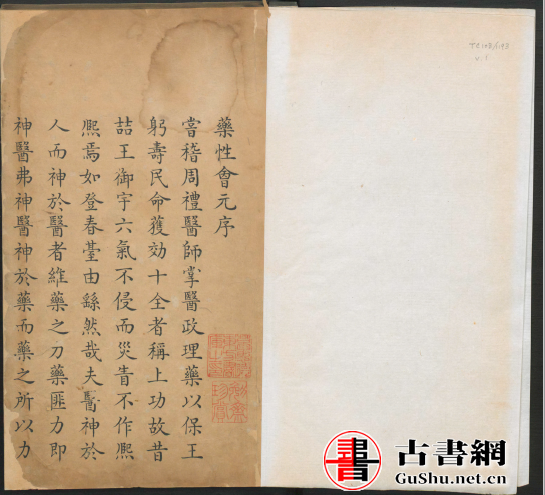 藥性會元序
嘗稽周禮醫師掌醫政理藥以保王
躬壽民命獲効十全者稱上功故昔
喆王御宇六氣不侵而災眚不作熈
熈焉如登春臺由繇然哉夫醫神於
人而神於醫者維藥之力藥匪力即
神醫弗神醫神於藥而藥之所以力
書 古書網
GuShu.net.cn